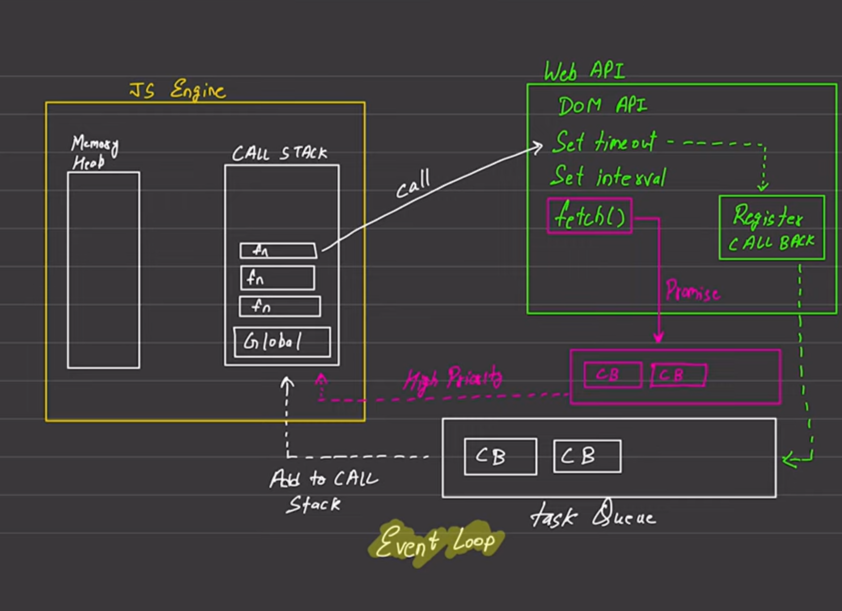 JS Engine
Memory
Heab
CALL STACK
fn
fn
fn
Global
call
Web API
DOM API
Set timeout
Set interval
fetch()
Register
CALL BACK
Promise
High Priority
CB
CB
Add to CALL
Stack
CB
CB
task Queue
Event Loop